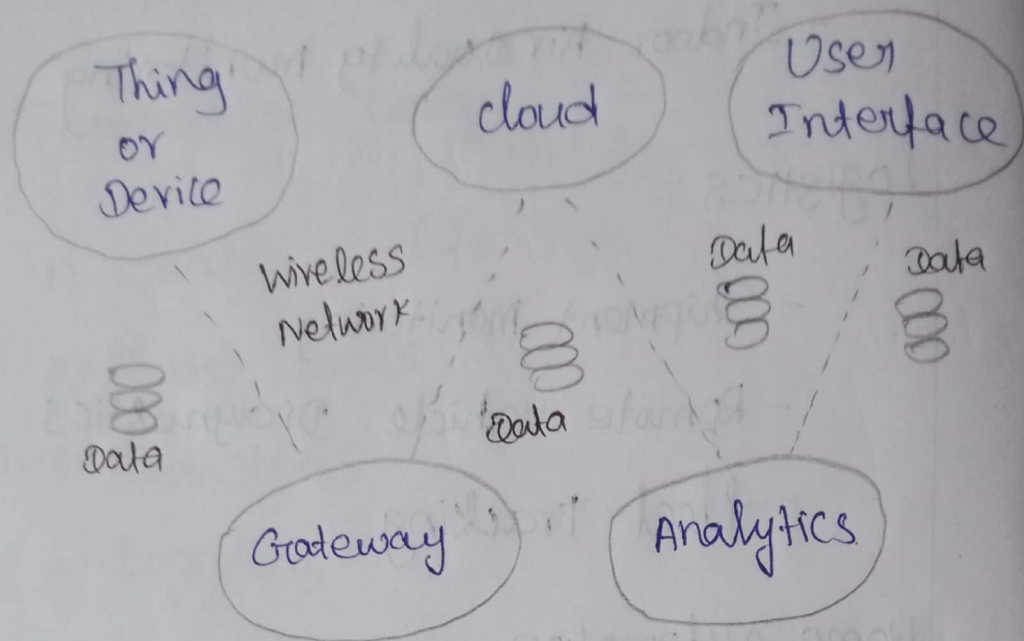 Thing
or
Device
cloud
User
Interface
Wireless
Network
Data
Data
Data
Data
Gateway
Analytics